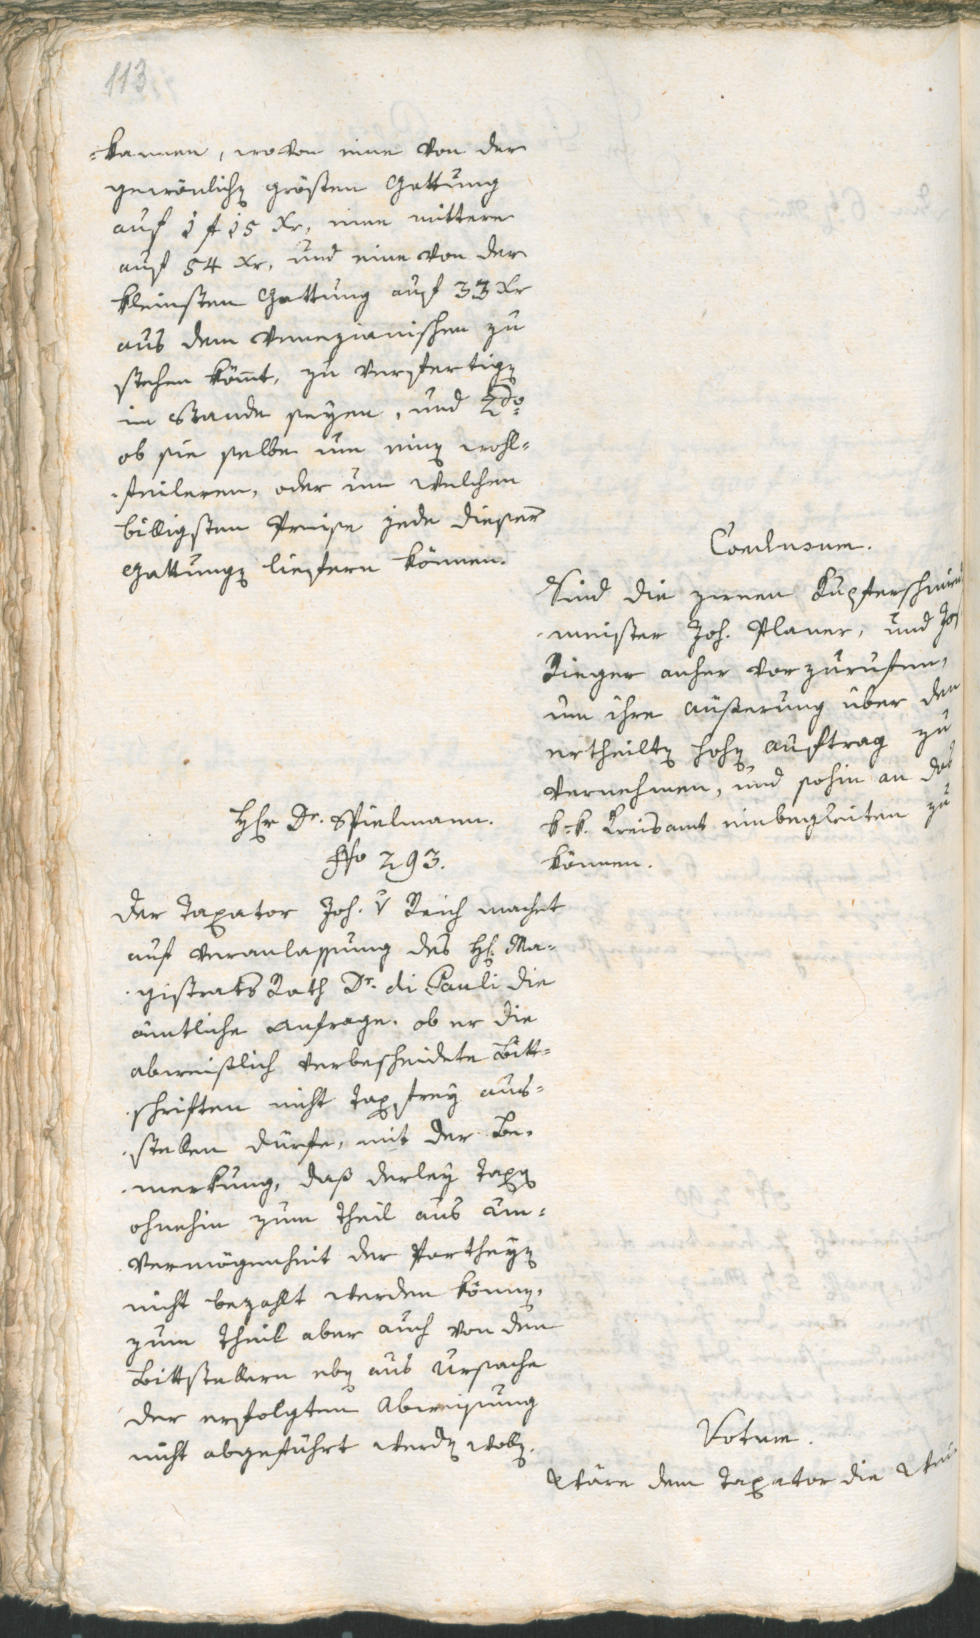 113
-kannen, wovon eine von der
gewönlichen grösten Gattung
auf 1 f 15 Xr, eine mittere
auf 54 Xr, und eine von der
kleinsten Gattung auf 33 Xr
aus dem Venezianischen zu
stehen kömt, zu verfertigen
im Stande seyen, und 2do
ob sie selbe um einen wohl-
-feileren, oder um welchen
billigsten Preise jede dieser
Gattungen liefern können.
Conclusum.
Sind die zween Kupferschmied
-meister Joh. Planer, und Jos
Rieger anher vorzurufen,
um ihre äußerung über den
ertheilten hohen auftrag zu
vernehmen, und sohin an das
k-k. Kreisamt einbegleiten zu
können.
Hr Dr. Spielmann.
No 293.
Der Taxator Joh. v Reich macht
auf veranlassung des H. Ma-
-gistrats Rath Dr. di Pauli die
ämtliche Anfrage. ob er die
abweißlich verbescheidete Bitt-
-schriften nicht taxfrey aus-
-stellen dürfe, mit der Be-
-merkung, daß derley Taxen
ohnehin zum theil aus Un-
-vermögenheit der Partheyen
nicht bezahlt werden können,
zum theil aber auch von den
Bittstellern eben aus Ursache
der erfolgten Abweisung
nicht abgeführt werden wollen.
Votum.
Wäre dem Taxator die